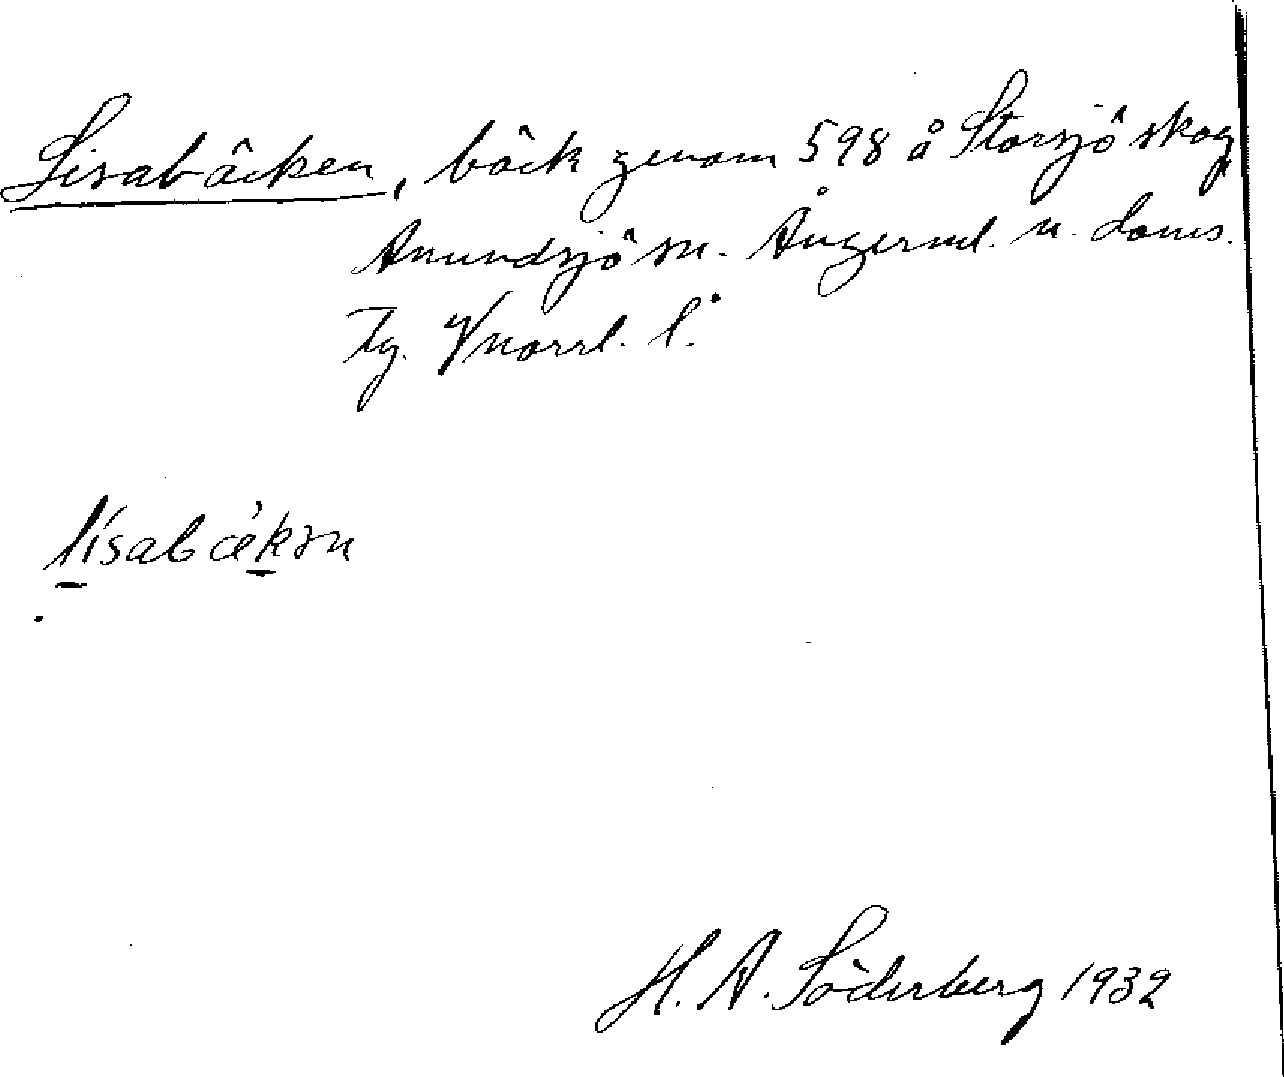 Lisabäcken, bäck genom 598 å Storsjö skog
Anundsjö sn. Ångerml. n. doms.
Tg. Vnorrl. l.
lisabäkən
H. A. Söderberg 1932